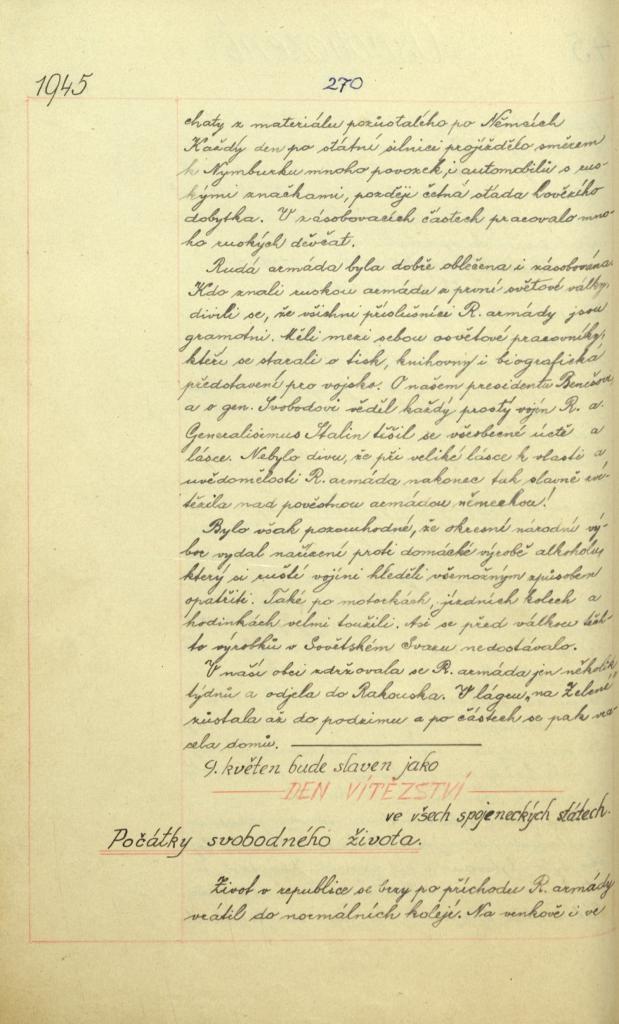 1945
270
chaty z materiálu pozůstalého po Němcích
Každý den po státní silnici projíždělo směrem
k Nymburku mnoho povozek, i automobilů s rus-
kými značkami, později četná stáda hovězího
dobytka. V zásobovacích částech pracovalo mno-
ho ruských děvčat.
Rudá armáda byla dobře oblečena i zásobována.
Kdo znali ruskou armádu z první světové války,
divili se, že všichni příslušníci R. armády jsou
gramotni. Měli mezi sebou osvětové pracovníky,
kteří se starali o tisk, knihovny i biografická
představení pro vojsko. O našem presidentu Benešovi
a o gen. Svobodovi věděl každý prostý vojín R. a.
Generalisimus Stalin těšil se všeobecné úctě a
lásce. Nebylo divu, že při veliké lásce k vlasti a
uvědomělosti R. armáda nakonec tak slavně zví-
tězila nad pověstnou armádou německou!
Bylo však pozoruhodné, že okresní národní vý-
bor vydal nařízení proti domácké výrobě alkoholu,
který si ruští vojíni hleděli všemožným způsobem
opatřiti. Také po motorkách, jízdních kolech a
hodinkách velmi toužili. Asi se před válkou těch-
to výrobků v Sovětském Svazu nedostávalo.
V naší obci zdržovala se R. armáda jen několik
týdnů a odjela do Rakouska. V lágru „na Zelené"
zůstala až do podzimu a po částech se pak vra-
cela domů.
9. květen bude slaven jako
DEN VÍTĚZSTVÍ
ve všech spojeneckých státech.
Počátky svobodného života.
Život v republice se brzy po příchodu R. armády
vrátil do normálních kolejí. Na venkově i ve